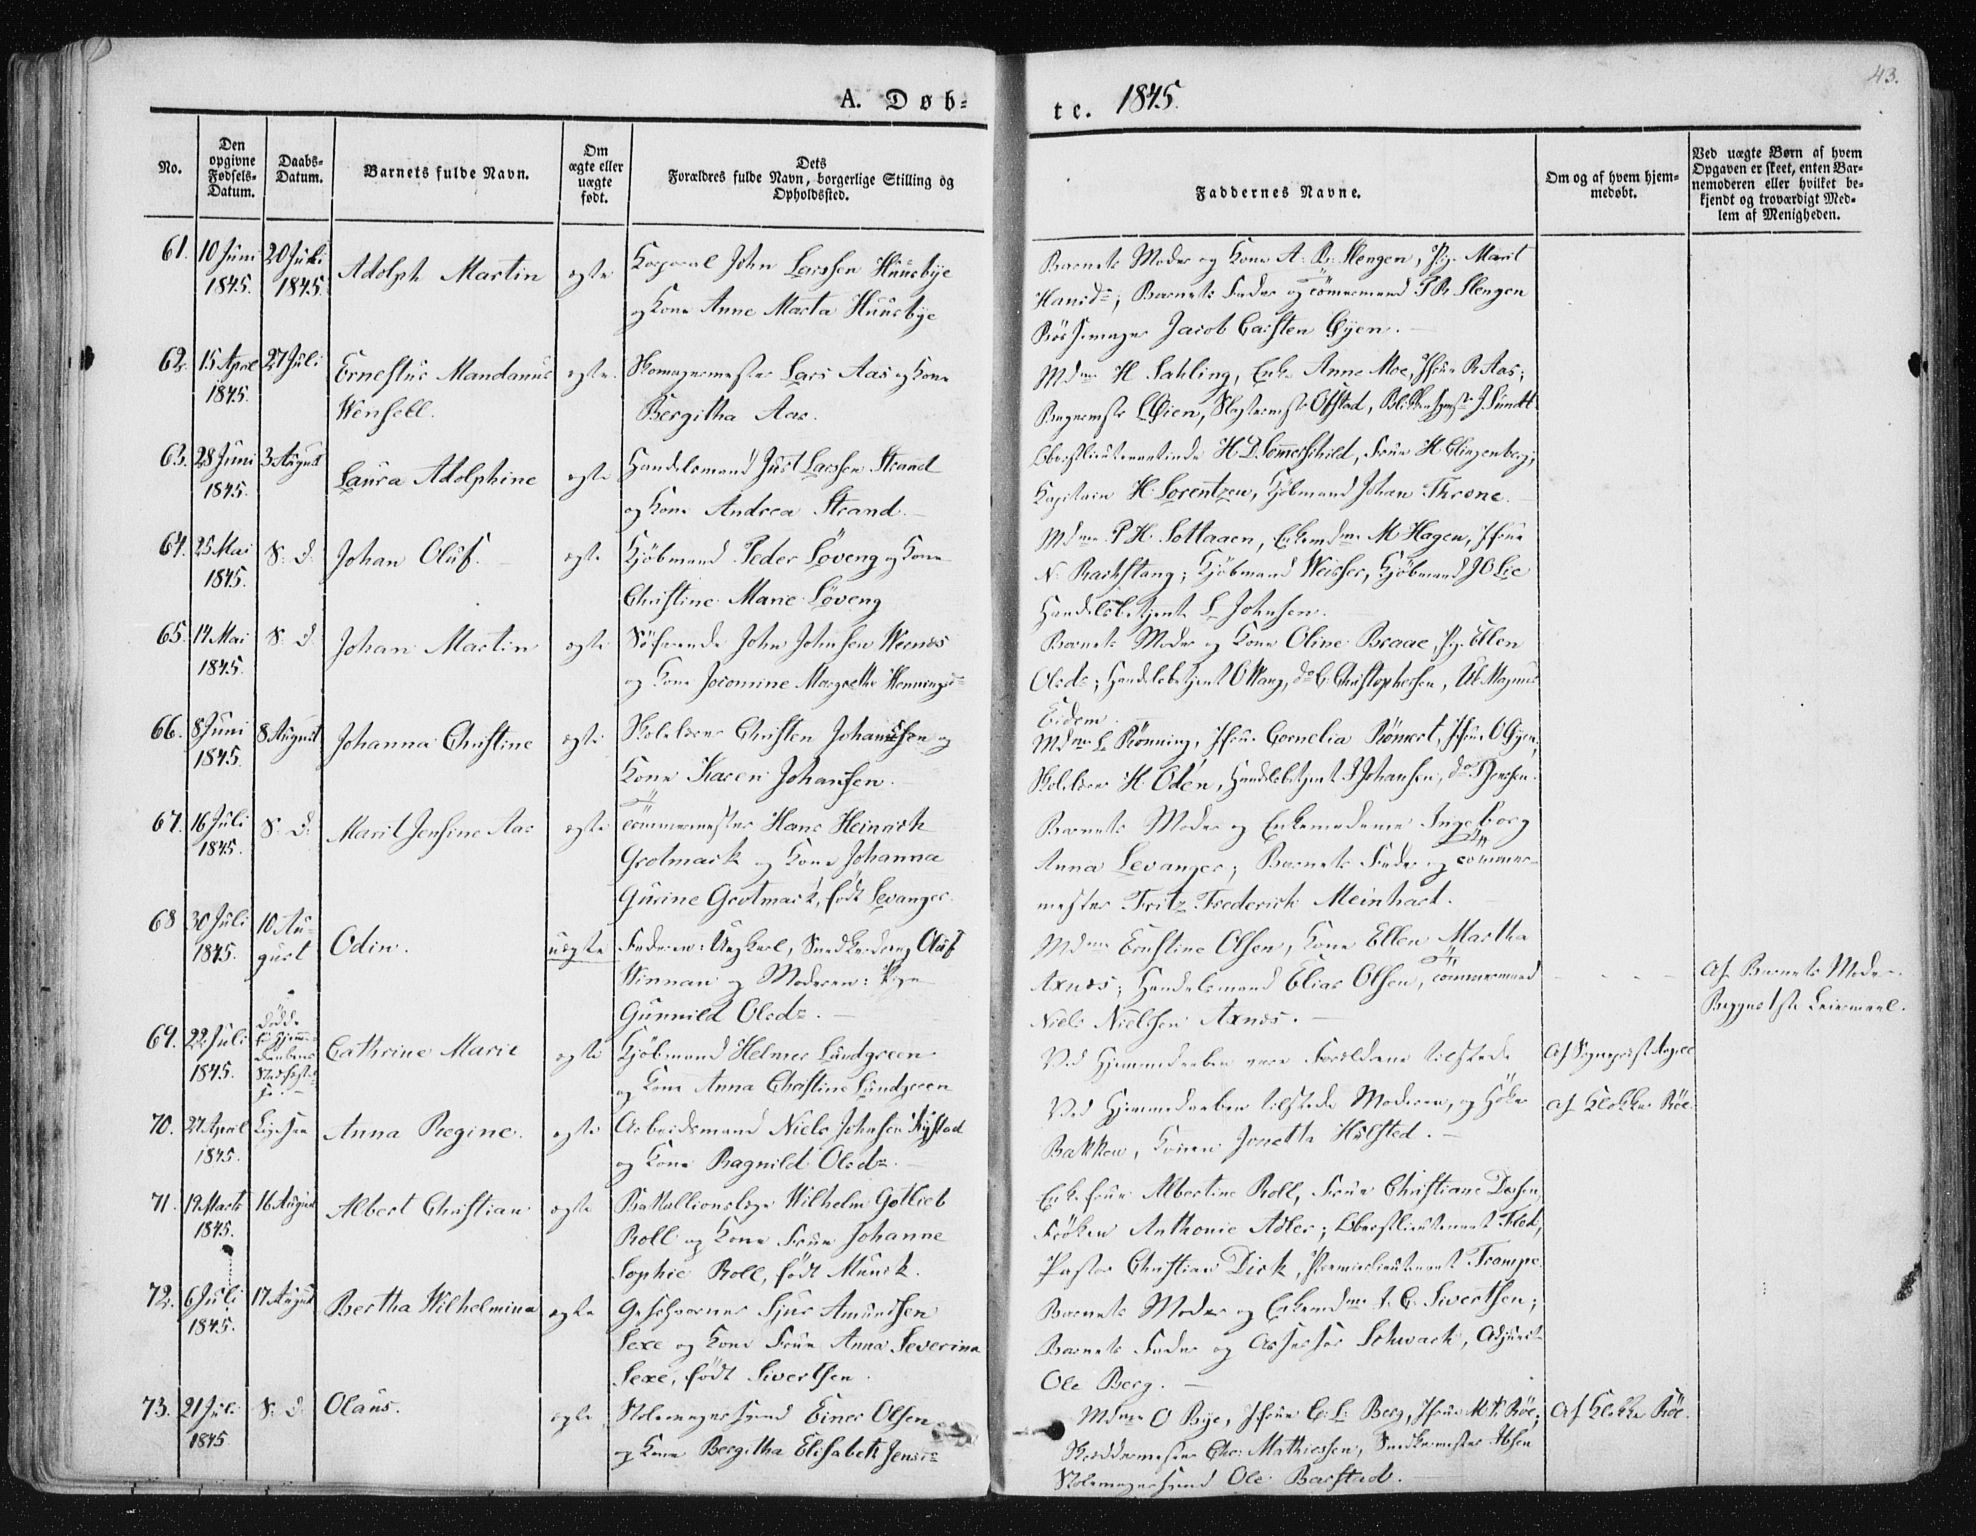 43.
A. Døb-
te. 1845.
No.
Den opgivne Fødsels-Datum.
Daabs-Datum.
Barnets fulde Navn.
Om ægte eller uægte født.
Dets Forældres fulde Navn, borgerlige Stilling og Opholdssted.
Faddernes Navne.
Om og af hvem hjem-medøbt.
Ved uægte Børn af hvem Opgaven er skeet, enten Bar-nemoderen eller hvilket be-kjendt og troværdigt Med-lem af Menigheden.
61. 10 Juni 1845. 20 Juli 1845. Adolph Martin ægte
Korporal John Larssen Huusbye
og Kone Anne Marta Huusbye
Barnets Moder og Kone A. B. Slengen, Pige Marit
Hansd; Barnets Fader og Tömmermand P R Slengen
Jacob Carsten Øyen.
62. 15 April 1845. 27 Juli Ernestus Mandanus
Wensell. ægte
Skomagermester Lars Aas og Kone
Bergitha Aas.
Mdme H Sahling, Enke Anne Moe, Jfrue R Aas;
L Øien, Ofstad, J. Sundt
63. 28 Juni 1845. 3 August Laura Adolphine ægte
Handelsmand Just Larssen Strand
og Kone Andrea Strand.
Oberstlieutenantinde H D Sommerschild, Frue H Klingenberg;
Kapitain H. Lorentzen, Kjöbmand Johan Throne.
64. 25 Mai 1845. S. D. Johan Oluf. ægte
Kjöbmand Peder Löveng og Kone
Christine Marie Löveng
Mdme P H. Sottaaen, Enkemdme M Hagen, Jfrue
N. Backstang; Kjöbmand Weisser, Kjöbmand J O Lie
Handelsbetjent L Johnsen.
65. 14 Mai 1845. S. D. Johan Martin ægte
Söfarende John Johnsen Wernes
og Kone Jocomine Margrethe Henningsd
Barnets Moder og Kone Oline Braae, Pige Ellen
Olsd; Handelsbetjent O Wang, do C Christophersen, Magnus
Eidem.
66. 8 Juni 1845. 8 August Johanna Christine ægte
Skolelærer Christen Johanssen og
Kone Karen Johansen.
Mdme L Rönning, Jfrue Cornelia, Jfrue O Gjen,
Skolelærer H. Oden, Handelsbetjent J Johansen, do Jenssen.
67. 16 Juli 1845. S. D. Marit Jensine Aas ægte
Tömmermester Hans Heinrich
Grotmack og Kone Johanna
Gurine Grotmack, födt Levanger.
Barnets Moder og Enkemadame Ingeborg
Anna Levanger; Barnets Fader og Tömmer-
mester Fritz Frederich Meinhart.
68 30 Juli 1845. 10 Au-
gust Odin. uægte
Faderen: Ungkarl, Snedkerdreng Oluf
Winnan og Moderen: Pige
Gunnild Olsd.
Mdme Ernstine Olsen, Kone Ellen Martha
Axnes; Handelsmand Elias Olsen, Tömmermand
Niels Nielsen Axnes.
Af Barnets Moder.
Begges 1ste Leiermaal.
69. 22 Juli 1845. Döde
Cathrine Marie ægte
Kjöbmand Helmer Lundgreen
og Kone Anna Christine Lundgreen
Ved Hjemmedaaben vare Forældrene tilstede
Af Sognepræst Angell
70. 27 April 1845. Ligesaa Anna Regine. ægte
Arbeidsmand Niels Johnsen Rystad
og Kone Ragnild Olsd.
Ved Hjemmedaaben tilstede Moderen, og Höker
Bakken, Konen Jonetta Hulsted.
Af Klokker Röe.
71. 19 Marts 1845. 16 August Albert Christian ægte
Battallionslæge Wilhelm Gotlieb
Roll og Kone Frue Johanne
Sophie Roll, födt Munck.
Enkefrue Albertine Roll, Frue Christiane Dessen,
Fröken Anthonie Adler; Oberstlieutenant Flod,
Pastor Christian Dick, Premierlieutenant Trampe.
72. 6 Juli 1845. 17 August Bertha Wilhelmina ægte
Geschworner Sjur Amundsen
Sexe og Kone Frue Anna Severina
Sexe, födt Sivertsen.
Barnets Moder og Enkemdme J. C. Sivertsen;
Barnets Fader og Assessor Schwach, Adjunct
Ole Berg.
73. 21 Juli 1845 S. D. Olaus. ægte
Stolemagersvend Einer Olsen
og Kone Bergitha Elisabeth Jensd
Mdme O Bye, Jfrue C. L. Berg, Jfrue M. K. Röe;
Skreddermester Chr. Mathiessen, Snedkermester Ibsen
Stolemagersvend Ole Barstad.
Af Klokker Röe.